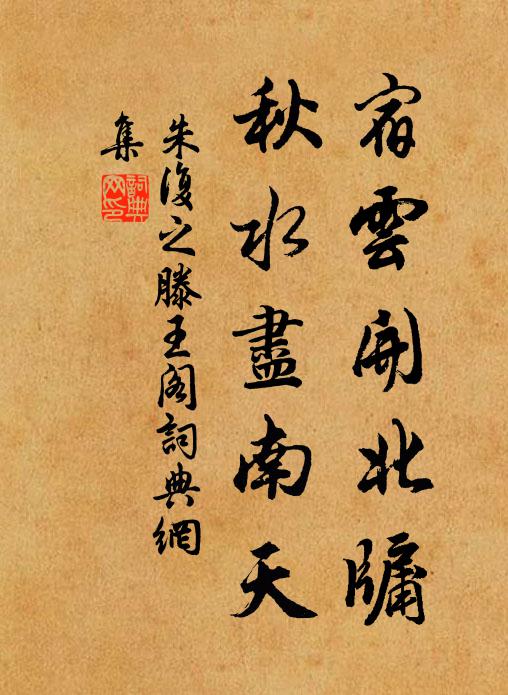 宿雲開北牖
秋水盡南天
朱復之滕王阁詞典網
集
詞典网印